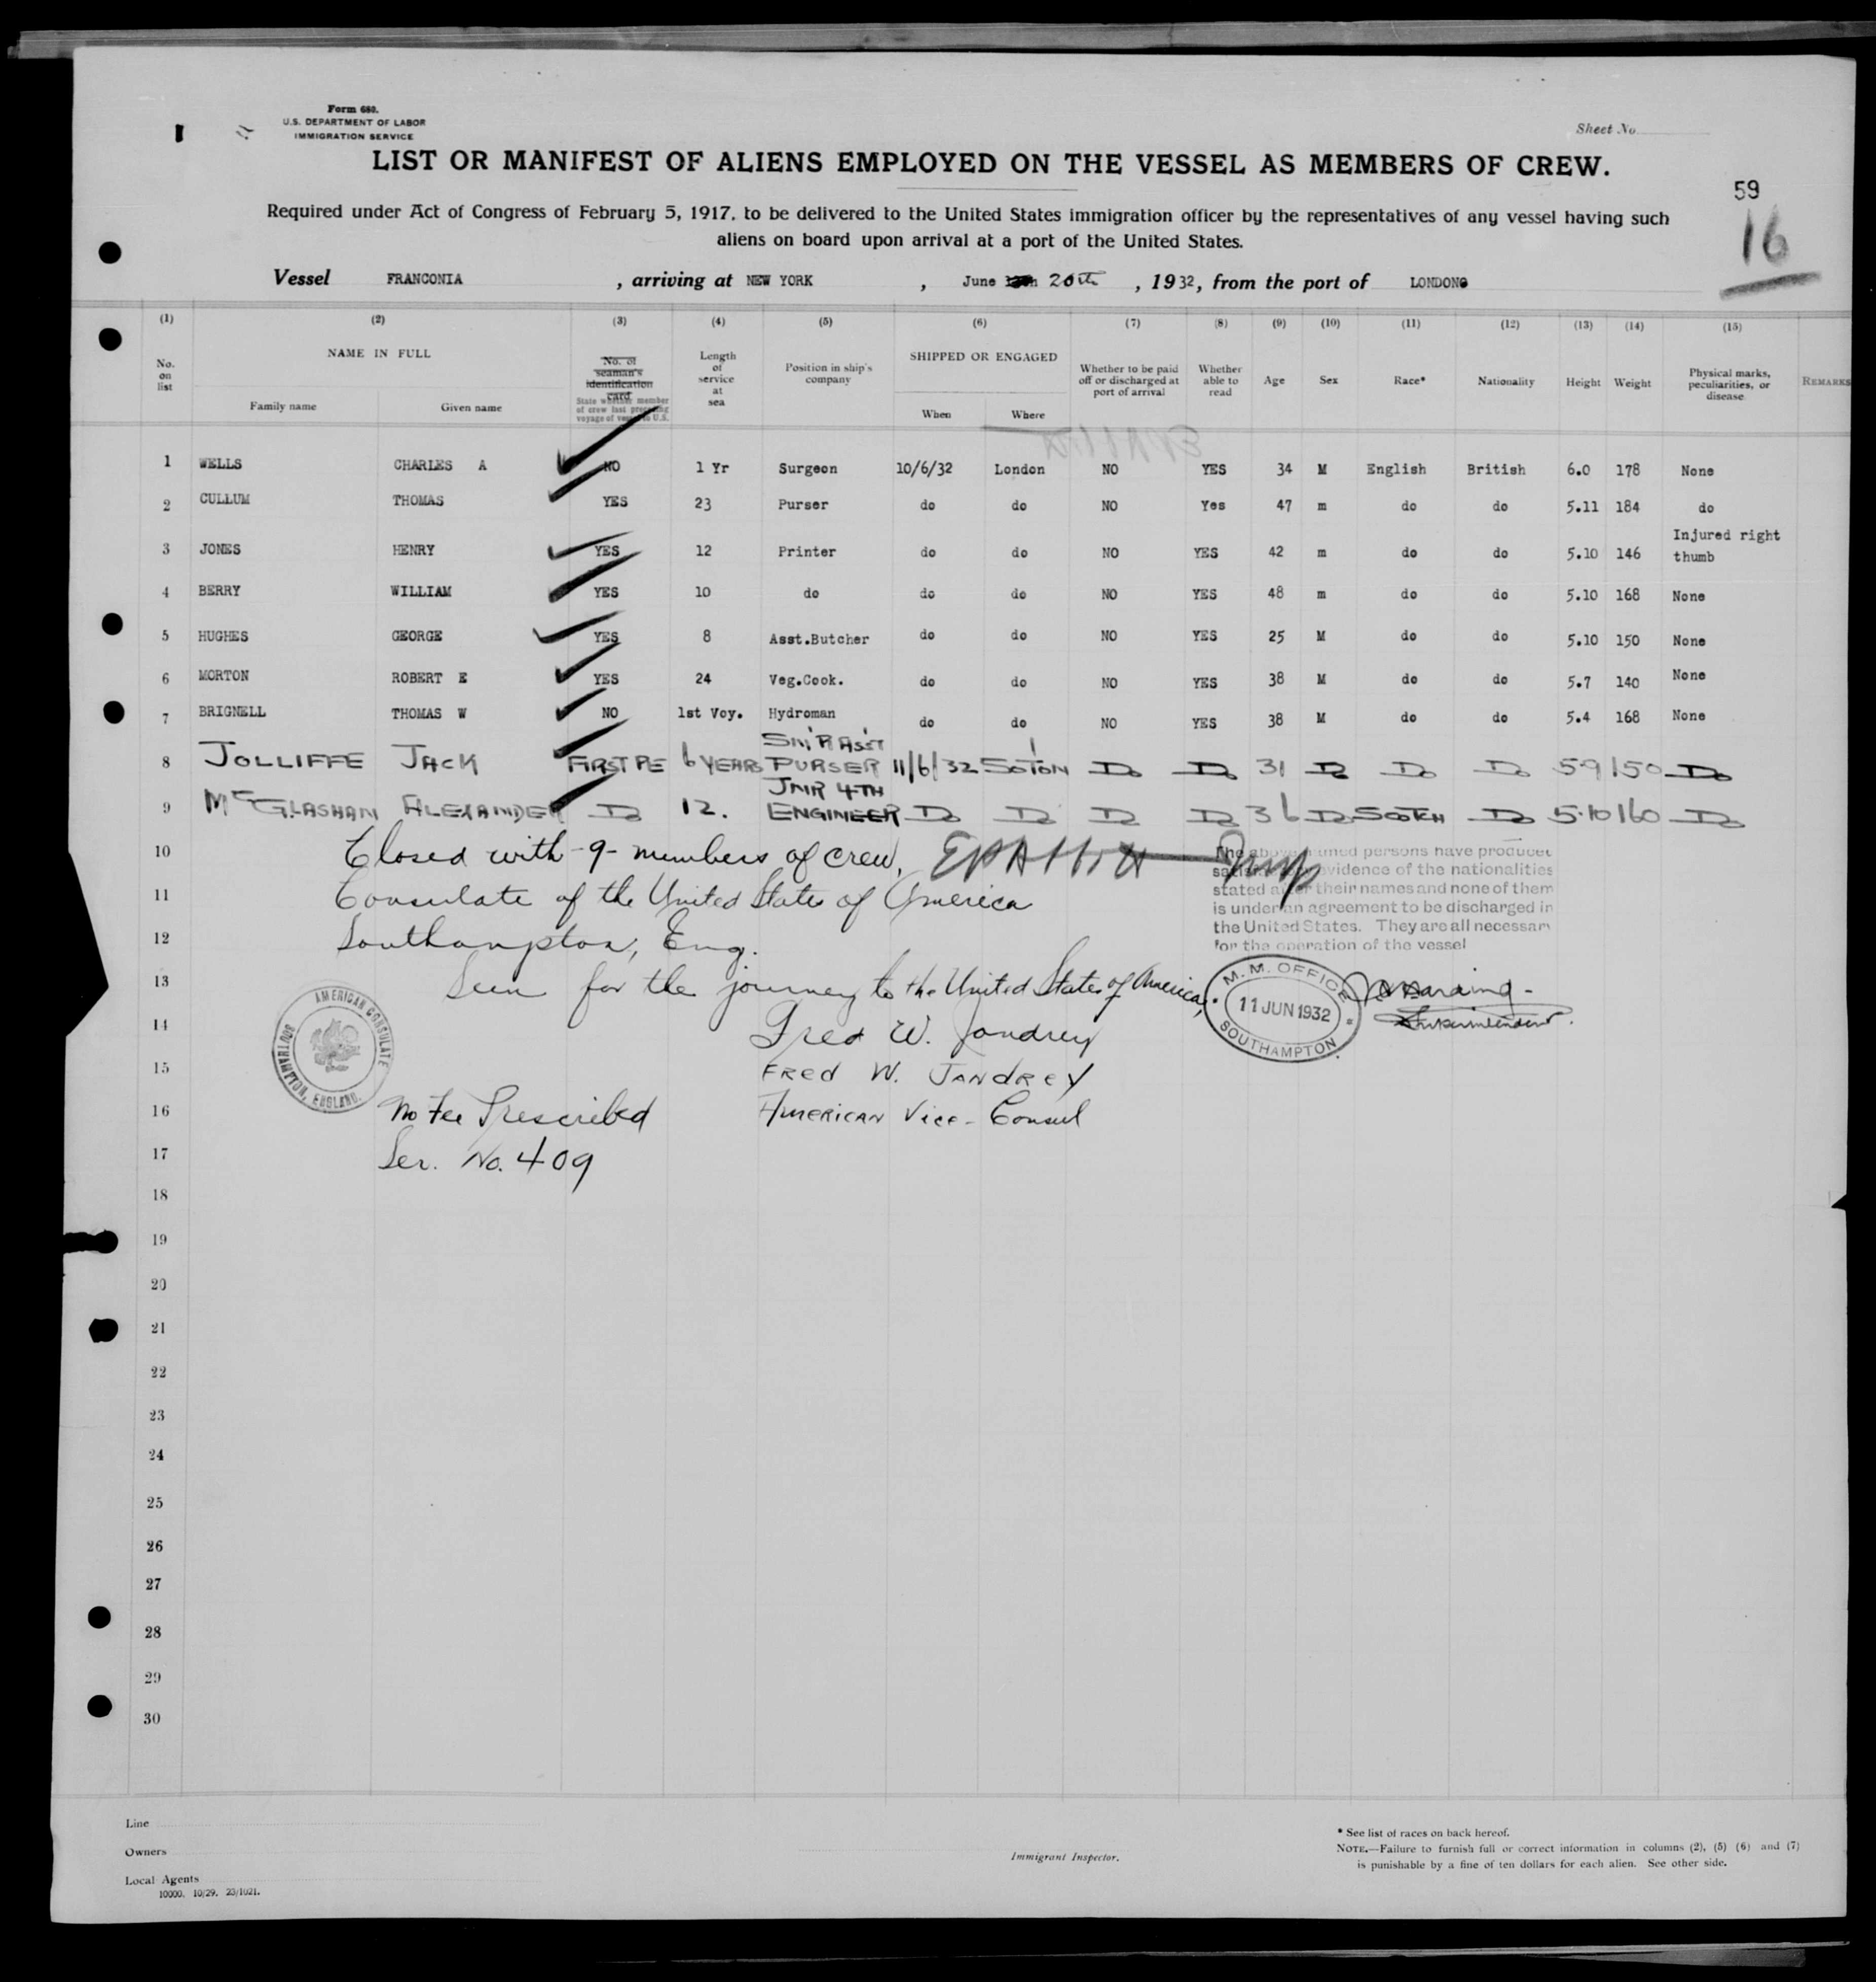 Form 680.
U.S. DEPARTMENT OF LABOR
IMMIGRATION SERVICE
Sheet No.
LIST OR MANIFEST OF ALIENS EMPLOYED ON THE VESSEL AS MEMBERS OF CREW.
59
16
Required under Act of Congress of February 5, 1917, to be delivered to the United States immigration officer by the representatives of any vessel having such
aliens on board upon arrival at a port of the United States.
Vessel FRANCONIA , arriving at NEW YORK , June 20th , 1932, from the port of LONDON
(1) (2) (3) (4) (5) (6) (7) (8) (9) (10) (11) (12) (13) (14) (15)
No. on list
NAME IN FULL
Family name Given name
No. of seaman's identification card
State whether member of crew last preceding voyage of vessel to U.S.
Length of service at sea
Position in ship's company
SHIPPED OR ENGAGED
When Where
Whether to be paid off or discharged at port of arrival
Whether able to read
Age Sex Race* Nationality Height Weight
Physical marks, peculiarities, or disease
REMARKS
1 WELLS CHARLES A NO 1 Yr Surgeon 10/6/32 London NO YES 34 M English British 6.0 178 None
2 CULLUM THOMAS YES 23 Purser do do NO Yes 47 m do do 5.11 184 do
3 JONES HENRY YES 12 Printer do do NO YES 42 m do do 5.10 146 Injured right thumb
4 BERRY WILLIAM YES 10 do do do NO YES 48 m do do 5.10 168 None
5 HUGHES GEORGE YES 8 Asst.Butcher do do NO YES 25 M do do 5.10 150 None
6 MORTON ROBERT E YES 24 Veg.Cook. do do NO YES 38 M do do 5.7 140 None
7 BRIGNELL THOMAS W NO 1st Voy. Hydroman do do NO YES 38 M do do 5.4 168 None
8 JOLLIFFE JACK 6 YEARS SNR ASST PURSER 11/6/32 SOTON Do Do 31 Do Do Do 5.9 150 Do
9 McGLASHAN ALEXANDER Do 12. JNR 4TH ENGINEER Do Do Do Do 36 Do SCOTCH Do 5.10 160 Do
10 Closed with -9- members of crew.
11 Consulate of the United States of America
12 Southampton, Eng.
13 Seen for the journey to the United States of America,
The above named persons have produced
satisfactory evidence of the nationalities
stated after their names and none of them
is under an agreement to be discharged in
the United States. They are all necessary
for the operation of the vessel
M.M. OFFICE
11 JUN 1932
SOUTHAMPTON
Superintendent.
AMERICAN CONSULATE
SOUTHAMPTON, ENGLAND.
14 Fred W. Jandrey
15 FRED W. JANDREY
16 No Fee Prescribed AMERICAN Vice-Consul
17 Ser. No. 409
18
19
20
21
22
23
24
25
26
27
28
29
30
Line
Owners
Local Agents
10000. 10/29. 23/1021.
Immigrant Inspector.
* See list of races on back hereof.
NOTE.—Failure to furnish full or correct information in columns (2), (5) (6) and (7)
is punishable by a fine of ten dollars for each alien. See other side.